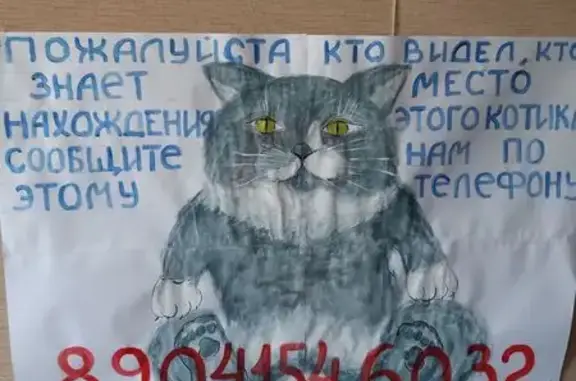 ПОЖАЛУЙСТА КТО ВИДЕЛ, КТО
ЗНАЕТ МЕСТО
НАХОЖДЕНИЯ ЭТОГО КОТИКА
СООБЩИТЕ НАМ ПО
ЭТОМУ ТЕЛЕФОНУ
89041546032